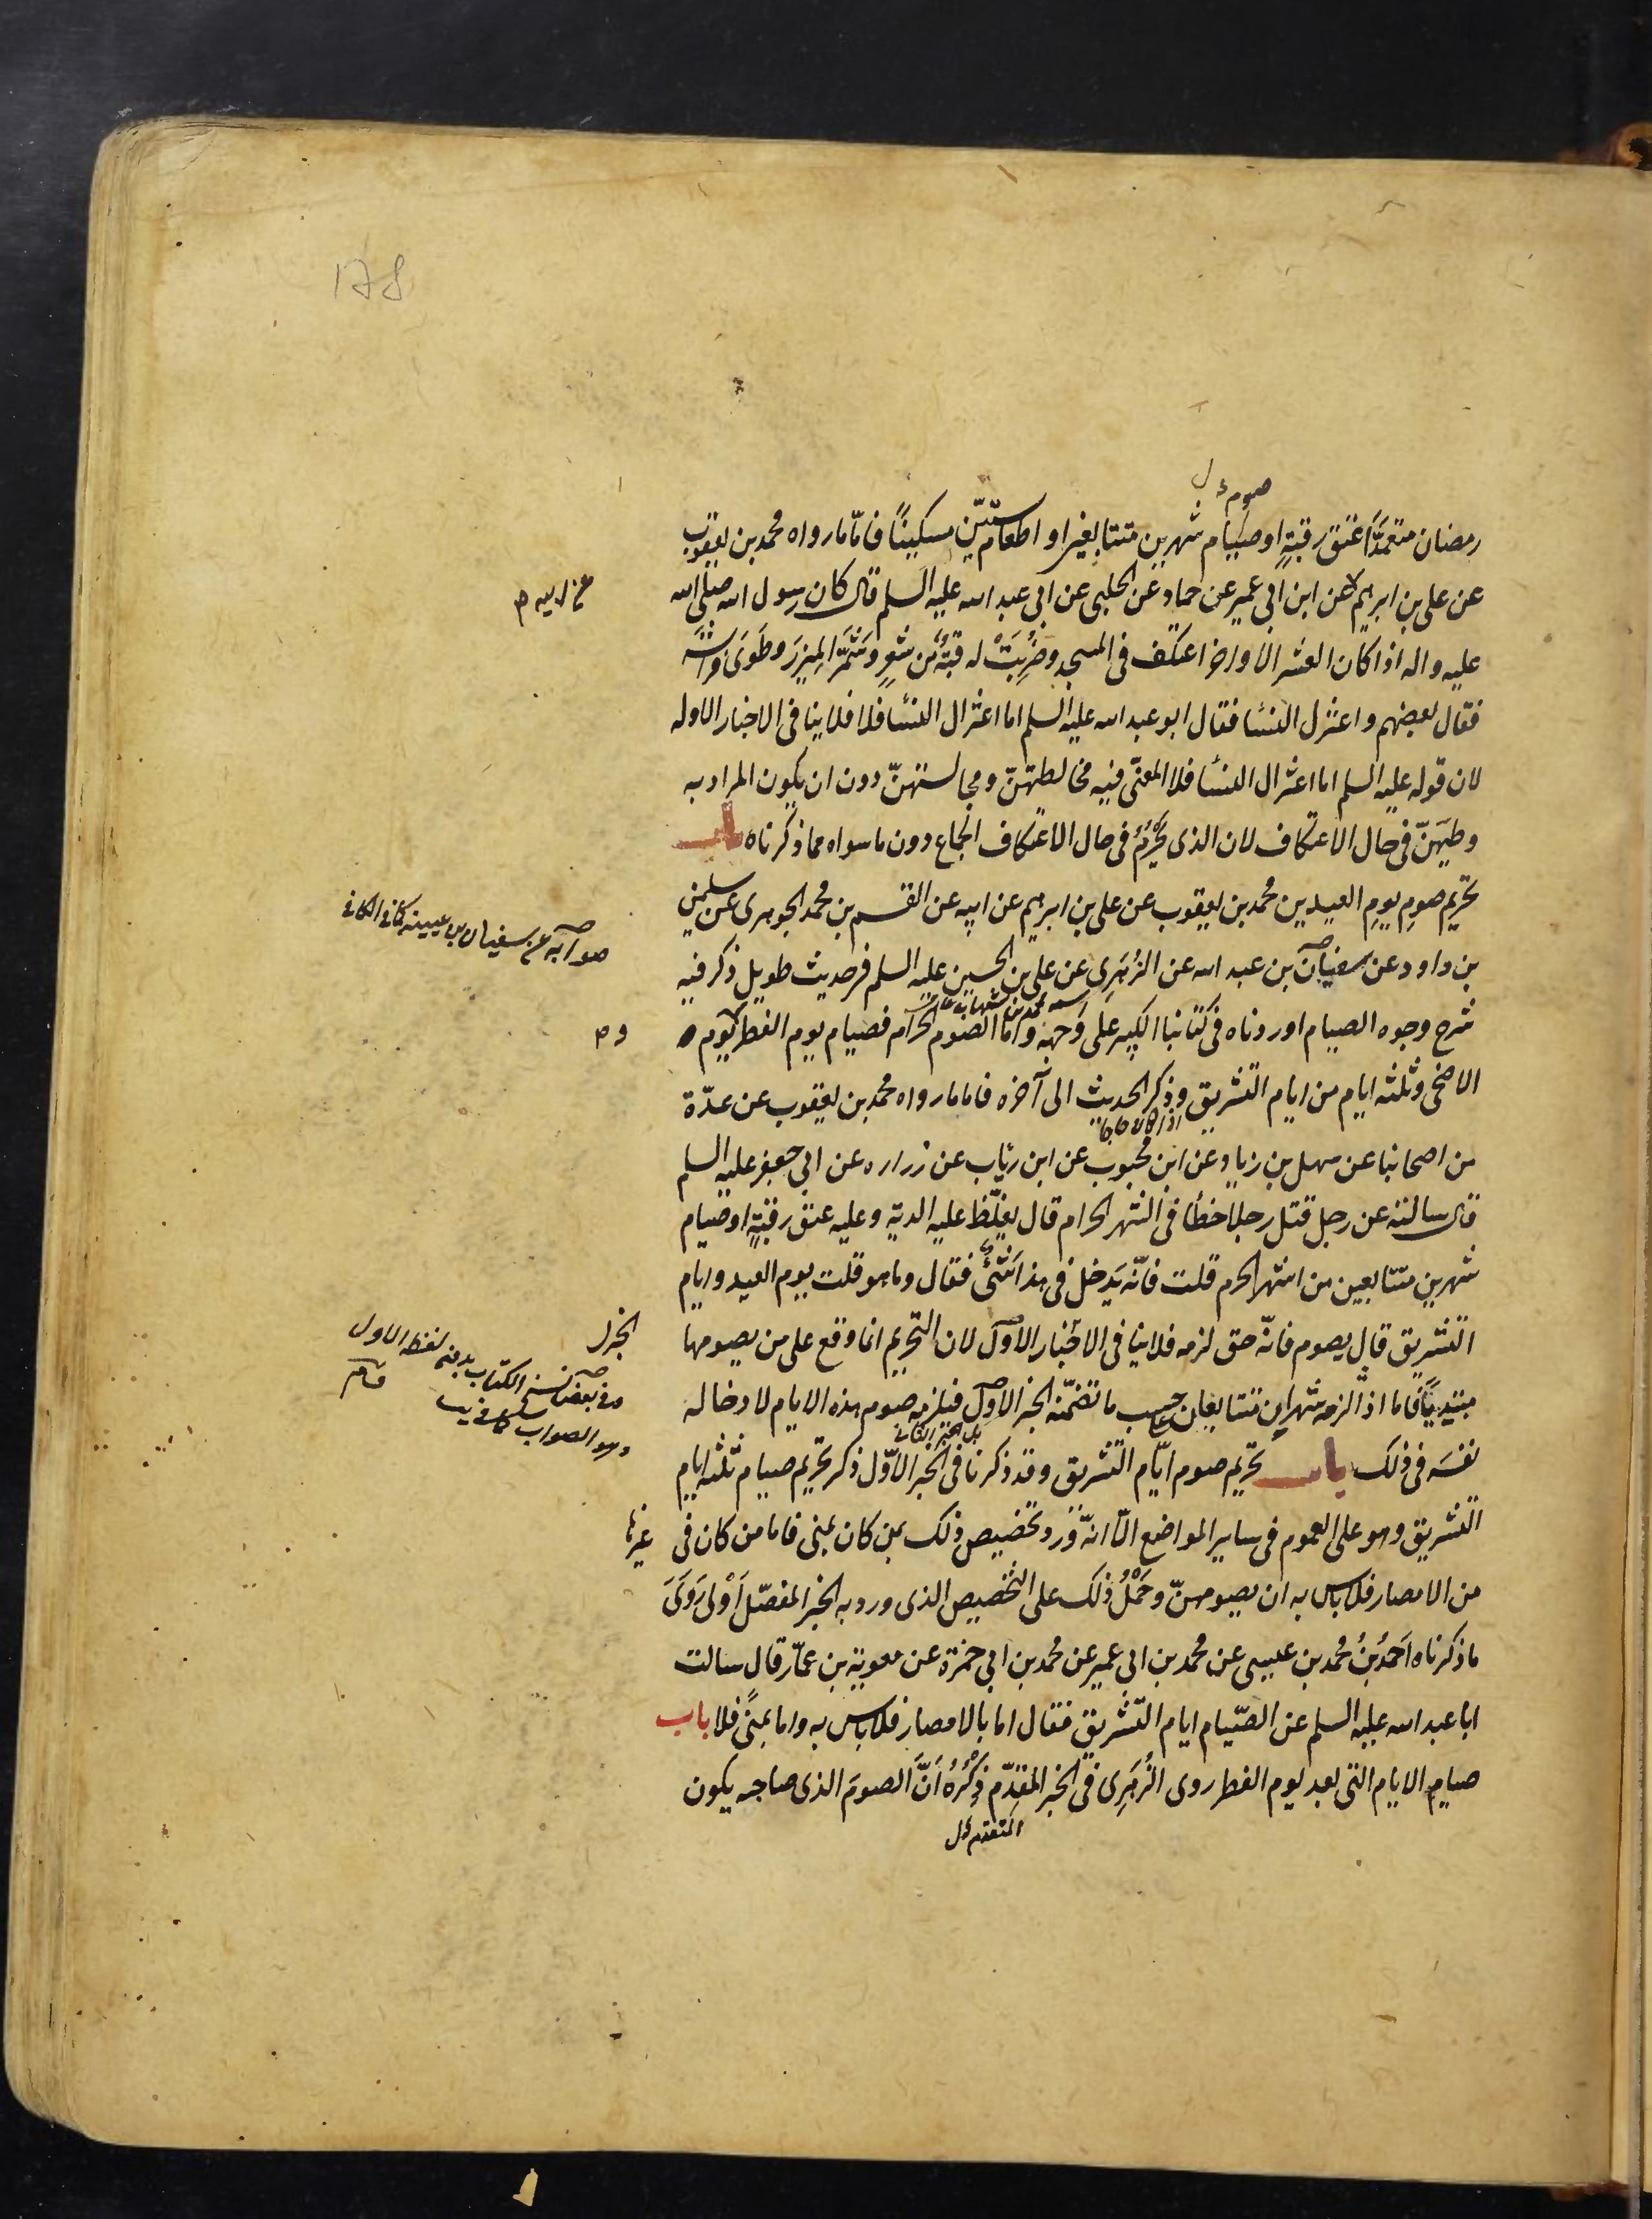 178
صوم ل
رمضان متعمّدًا عتق رقبةٍ او صيام شهرين متتابعين او اطعام ستّين مسكينًا فامّا ما رواه محمد بن يعقوب
عن علي بن ابرهيم عن ابن ابي عمير عن حماد عن الحلبي عن ابي عبد الله عليه السلم قال كان رسول الله صلى الله
عن ابيه م
عليه واله اذا كان العشر الاواخر اعتكف في المسجد وضُرِبَتْ له قبّةٌ من شعرٍ وشمّر الميزر وطوى فراشه
فقال بعضهم واعتزل النسا فقال ابو عبد الله عليه السلم اما اعتزال النسا فلا فلا ينافي الاخبار الاوله
لان قوله عليه السلم اما اعتزال النسا فلا المعنّى فيه مخالطتهنّ ومجالستهنّ دون ان يكون المراد به
وطيهنّ في حال الاعتكاف لان الذي يحرم في حال الاعتكاف الجماع دون ما سواه مما ذكرناه باب
تحريم صوم يوم العيدين محمد بن يعقوب عن علي بن ابرهيم عن ابيه عن القسم بن محمد الجوهري عن سليمن
صوابه عن سفيان بن عيينه كما في الكافي
بن داود عن سفيان بن عبد الله عن الزهري عن علي بن الحسين عليه السلم في حديث طويل ذكر فيه
محمد بن شهاب
شرح وجوه الصيام اوردناه في كتابنا الكبير على وجهه واما الصوم الحرام فصيام يوم الفطر ويوم
و م
الاضحى وثلثه ايام من ايام التشريق وذكر الحديث الى آخره فاما ما رواه محمد بن يعقوب عن عدّة
من اصحابنا عن سهل بن زياد عن ابن محبوب عن ابن رياب عن زراره عن ابي جعفر عليه السلم
قال سالته عن رجل قتل رجلا خطأ في الشهر الحرام قال يغلّظ عليه الدية وعليه عتق رقبةٍ او صيام
شهرين متتابعين من اشهر الحرم قلت فانّه يدخل في هذا شئ فقال وما هو قلت يوم العيد وايام
التشريق قال يصوم فانّه حق لزمه فلا ينافي الاخبار الاول لان التحريم انما وقع على من يصومها
الخبر ل
وفي بعض نسخ الكتاب بدون لفظه الاول
وهو الصواب كما في يب
مبتديًا فاما اذا لزمه شهران متتابعان حسب ما تضمّنه الخبر الاول فيلزمه صوم هذه الايام لادخاله
بل الخبر الثاني
نفسه في ذلك باب تحريم صوم ايّام التشريق وقد ذكرنا في الخبر الاوّل ذكر تحريم صيام ثلثه ايام
التشريق وهو على العموم في ساير المواضع الّا انّه ورد تخصيص ذلك بمن كان بمنى فاما من كان في
غيرها
من الامصار فلا باس به ان يصومهنّ وحَمْلُ ذلك على التخصيص الذي ورد به الخبر المفصّل اَوْلى رَوَى
ما ذكرناه احمدُ بنُ محمد بن عيسى عن محمد بن ابي عمير عن محمد بن ابي حمزة عن معوية بن عمّار قال سالت
ابا عبد الله عليه السلم عن الصّيام ايام التّشريق فقال اما بالامصار فلا باس به واما بمنًى فلا باب
صيام الايام التي بعد يوم الفطر روى الزهري في الخبر المقدّم ذِكْرُهُ اَنَّ الصومَ الذي صاحبه يكون
المتقدم ل